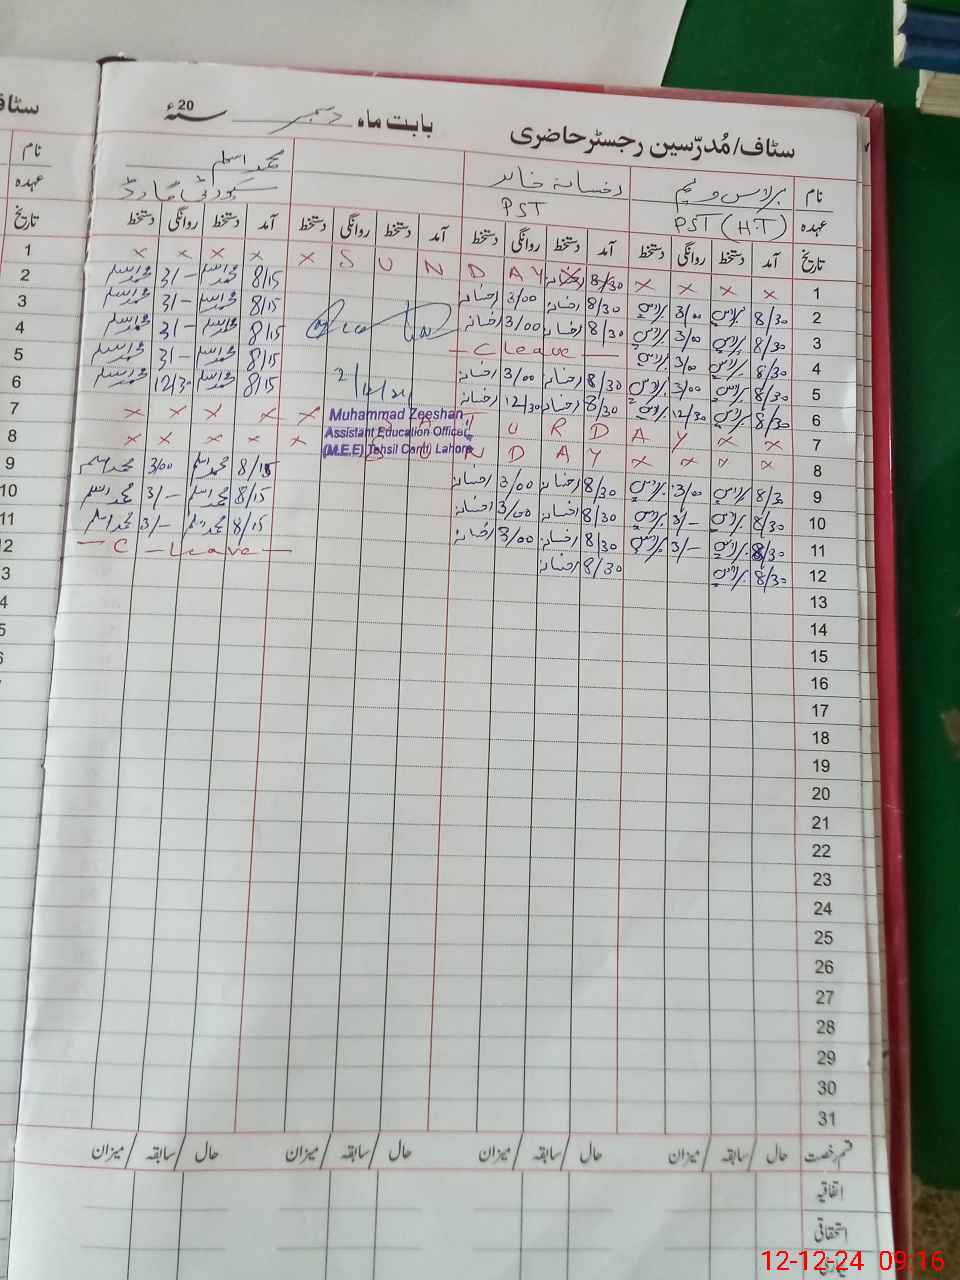 سٹاف/مُدرّسین رجسٹر حاضری بابت ماہ دسمبر سنہ 20ء
نام رخسانہ خالد محمد اسلم
عہدہ PST (H.T) PST سیکورٹی گارڈ
تاریخ آمد دستخط روانگی دستخط آمد دستخط روانگی دستخط آمد دستخط روانگی دستخط آمد دستخط روانگی دستخط
1 × × × × S U N D A Y × × × × ×
2 8/30 3/00 8/30 رخسانہ 3/00 رخسانہ 8/15 محمد اسلم 3/– محمد اسلم
3 8/30 3/00 8/30 رخسانہ 3/00 رخسانہ 8/15 محمد اسلم 3/– محمد اسلم
4 8/30 3/00 – C Leave – 8/15 محمد اسلم 3/– محمد اسلم
5 8/30 3/00 8/30 رخسانہ 3/00 رخسانہ 8/15 محمد اسلم 3/– محمد اسلم
6 8/30 12/30 8/30 رخسانہ 12/30 رخسانہ 8/15 محمد اسلم 12/30 محمد اسلم
Muhammad Zeeshan
Assistant Education Officer
(M.E.E) Tehsil Cantt Lahore
7 × × U R D A Y × × × × ×
8 × × × N D A Y × × × × ×
9 8/30 3/00 8/30 رخسانہ 3/00 رخسانہ 8/15 محمد اسلم 3/00 محمد اسلم
10 8/30 3/– 8/30 رخسانہ 3/00 رخسانہ 8/15 محمد اسلم 3/– محمد اسلم
11 8/30 3/– 8/30 رخسانہ 3/00 رخسانہ 8/15 محمد اسلم 3/– محمد اسلم
12 8/30 8/30 رخسانہ – C – Leave –
13
14
15
16
17
18
19
20
21
22
23
24
25
26
27
28
29
30
31
قسم رخصت حال / سابقہ / میزان حال / سابقہ / میزان حال / سابقہ / میزان حال / سابقہ / میزان
اتفاقیہ
استحقاقی
12-12-24 09:16